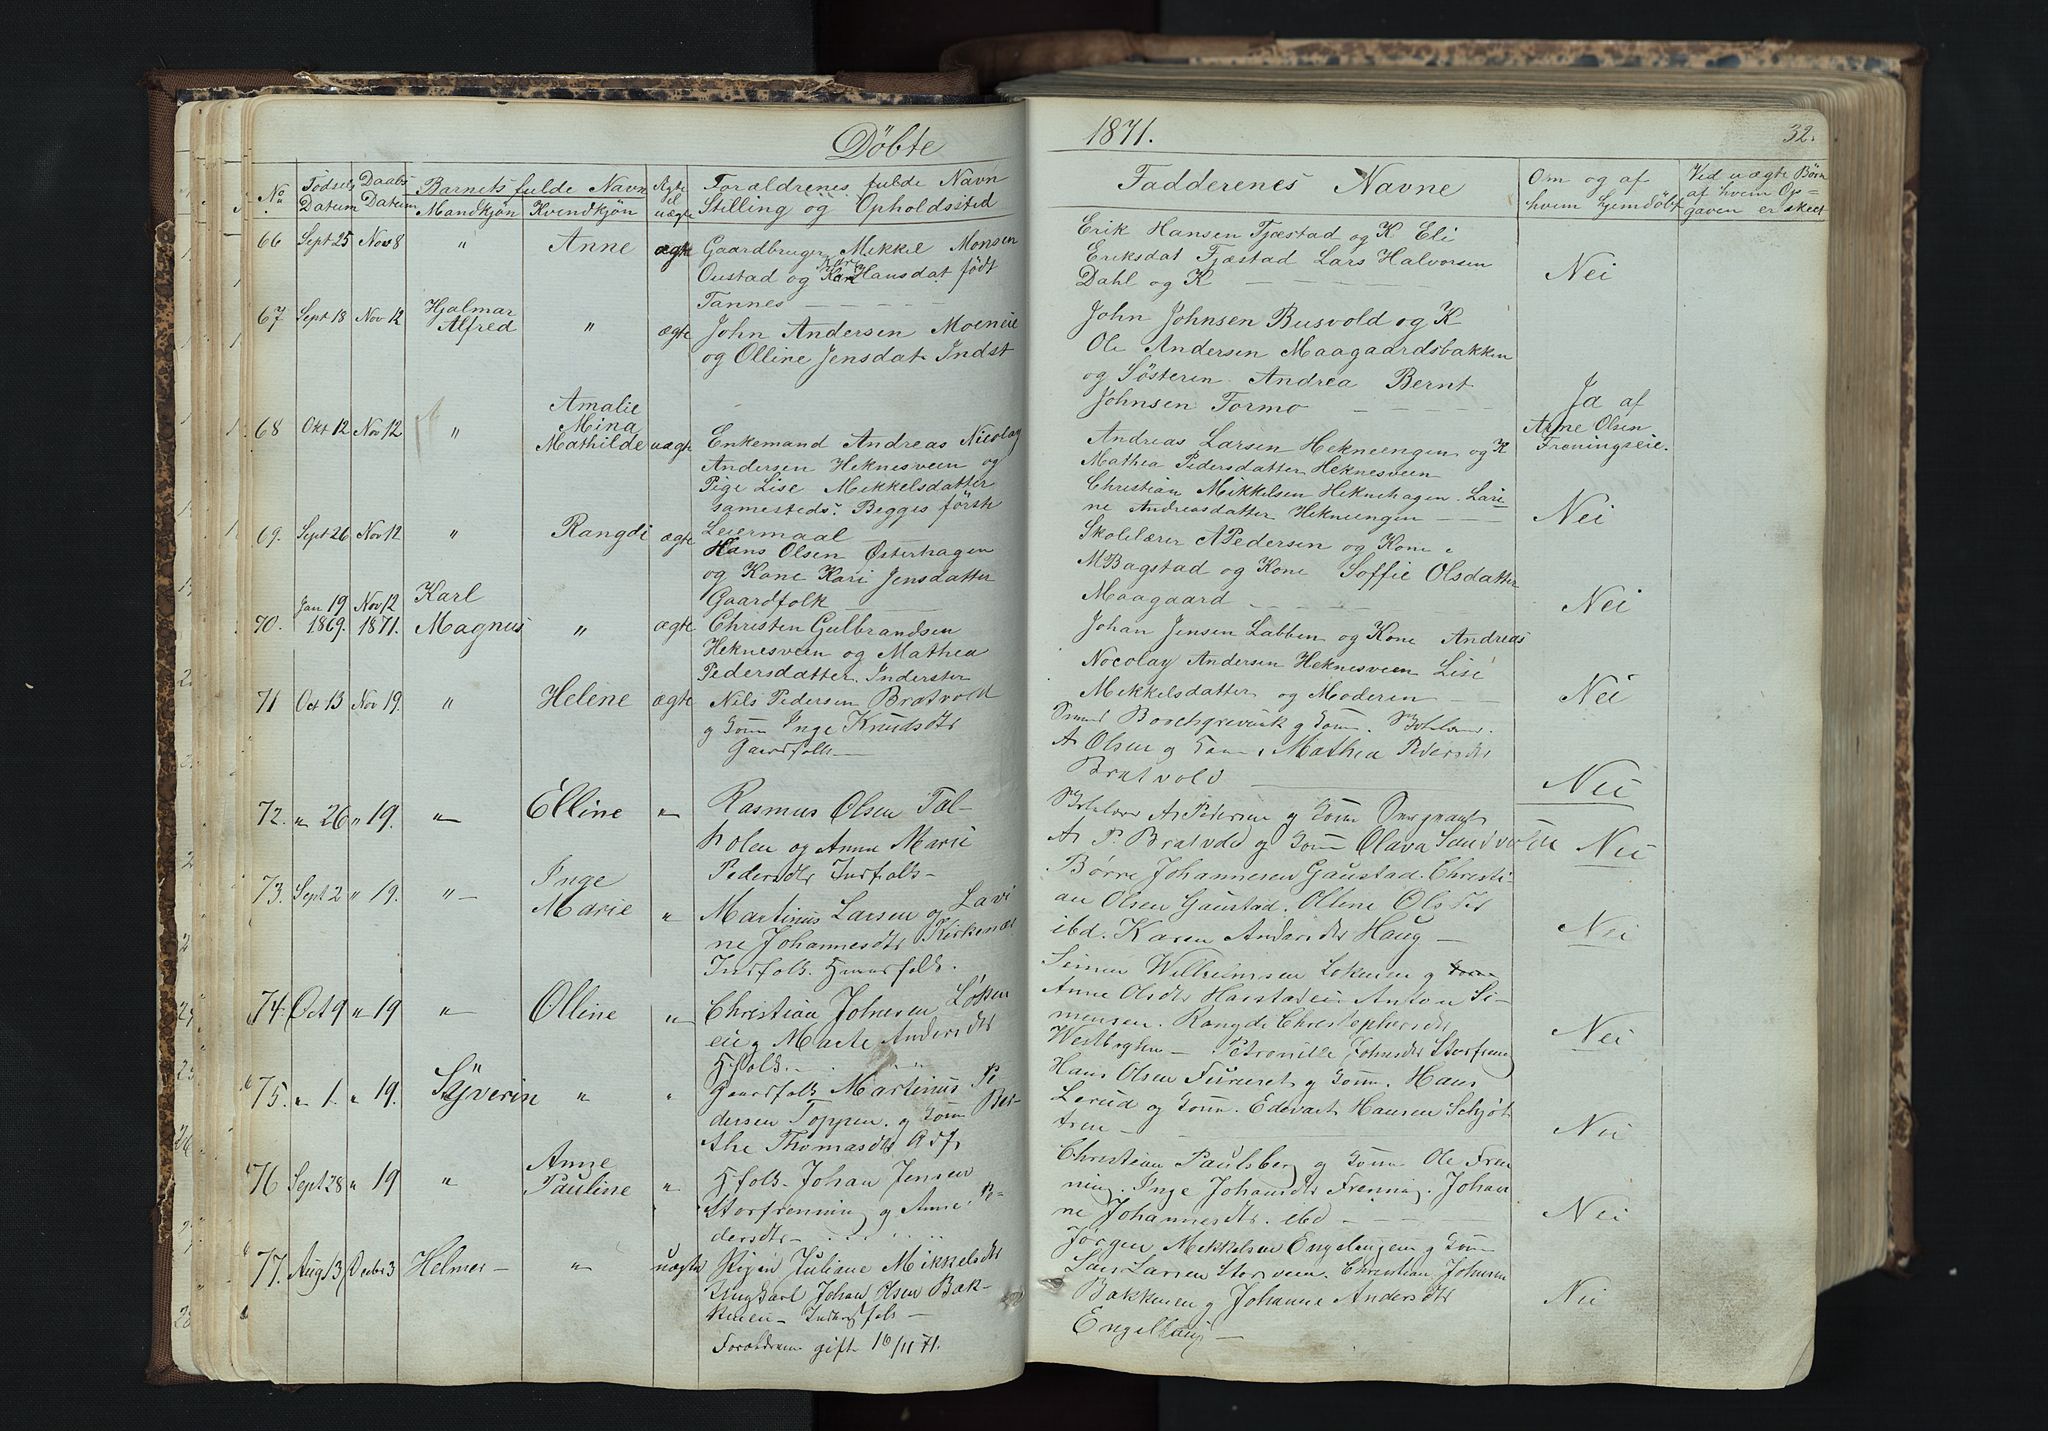 Döbte
No
Fødsels Datum
Daabs Datum
Barnets fulde Navn
Mandkjön Kvendkjön
Ægte el uægte
Forældrenes fulde Navn
Stilling og Opholdssted
66 Sept 25 Nov 8 " Anne ægte Gaardbruger Mikkel Monsen
Oustad og Kari Hansdat. født
Tannes
67 Sept 18 Nov 12 Hjalmar
Alfred " ægte John Andersen Moeneie
og Olline Jensdat. Indst
Amalie
Mina
68 Okt 12 Nov 12 " Mathilde uægte Enkemand Andreas Nicolay
Andersen Heknesveen og
Pige Lise Mikkelsdatter
samesteds. Begges förste
Leiermaal
69. Sept 26 Nov 12 " Rangdi ægte Hans Olsen Østerhagen
og Kone Kari Jensdatter
Gaardfolk
70. Jan 19 1869. Nov 12 1871. Karl
Magnus " ægte Christen Gulbrandsen
Heknesveen og Mathea
Pedersdatter. Inderster
71 Oct 13 Nov 19. " Helene ægte Nils Pedersen Bratvold
og Inge Knudsdtr
Gaardfolk
72. " 26 " 19. " Elline " Rasmus Olsen
og Anna Marie
Pedersdtr Indfolk
73. Sept 2 " 19. " Inge
Marie " Martinus Larsen og Lavi
ne Johannesdtr Kirkenær
Indfolk.
74. Oct 9 " 19 " Olline " Christian Johnsen Løken
eie og Marte Andersdtr
Hfolk.
75. " 1. " 19. Syverin " " Gaardfolk Martinus Pe
dersen Toppen. og Ber-
the Thomasdtr
76 Sept 28 " 19 " Anne
Pauline " Hfolk. Johan Jensen
Storfrenning og Anne Pe-
dersdtr
77. Aug 13 Decbr 3 Helmer " uægte Pigen Juliane Mikkelsdtr
Ungkarl Johan Olsen Bak-
kmeien
Forældrene gift 16/11 71.
1871.
32.
Fadderenes Navne
Om og af
hvem hjemdöbt
Ved uægte Börn
af hvem Op-
gaven er skeet
Erik Hansen Tjæstad og K Eli
Eriksdat Tjæstad Lars Halvorsen
Dahl og K
Nei
John Johnsen Busvold og K
Ole Andersen Maagaardsbakken
og Søsteren Andrea Bernt
Johnsen Formo
Ja af
Arne Olsen
Freningseie.
Andreas Larsen Heknengen og K
Mathea Pedersdatter Heknesveen
Christian Mikkelsen Heknehagen. Lari-
ne Andreasdatter Heknengen
Nei
Skolelærer A Pedersen og Kone.
M Bagstad og Kone Soffie Olsdatter
Maagaard
Nei
Johan Jensen Labben og Kone Andreas
Nocolay Andersen Heknesveen Lise
Mikkelsdatter og Moderen
Nei
Borchgrevink og
A Olsen og Mathea Pedersdtr
Bratvold
Nei
A Pedersen og
A. P. Bratvold og Olava Sandvolden
Nei
Børre Johannesen Gaustad. Christi-
an Olsen Gaustad. Ollene Olsdtr
ibd. Karen Andersdtr Haug
Nei
Simen Wilhelmsen Lokneien og
Anne Olsdtr Harstadeie Anton Si-
mensen. Rangdi Christophersdtr
Westberghen Petronille Johnsdtr Storfrening
Nei
Hans Olsen Furuset og Hans
Lerud og Edevart Hansen Schjøt
tren
Nei
Christian Paulsberg og Ole Fren
ning. Inge Johansdtr Frenning. Johan
ne Johannesdtr. ibd
Nei
Jørgen Mikkelsen Engelaugen og
Lars Larsen Storsveen. Christian Johnsen
Bakkmeien og Johanne Andersdtr
Engelhaug
Nei